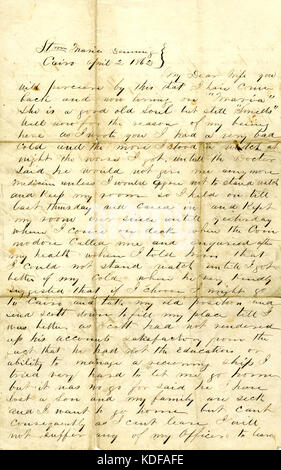 Stmr Maria Denning
Cairo April 2 1862
My Dear Wife you
will percieve by this that I have come
back and now living on "Maria"
She is a good old soul but still smells
Well now for the reason of my being
here as I wrote you I had a very bad
cold and the more I stood watch at
night the worse I got, untill the Doctor
said he would not give me any more
Medicin unless I would agree not to stand watch
and keep my room so I held on till
last Thursday and caved in and kept
my room ever since untill yesterday
when I came on deck when the Com
modore called me and enquired after
my health when I told him that
I could not stand watch untill I got
better of my cold when he very kindly
suggested that if I chose I might go
to Cairo and take my old position and
send Scott down to fill my place till I
was better as Scott had not rendered
up his accounts satisfactory from the
fact that he had not the education or
ability to manage a receiving ship I
tried very hard to let me go home
but it was no go for said he I have
lost a son and my family are sick
and I want to go home but cant
consequently as I cant leave I will
not suffer any of my Officers to leave
alamy
Image ID: KDFAFE
www.alamy.com